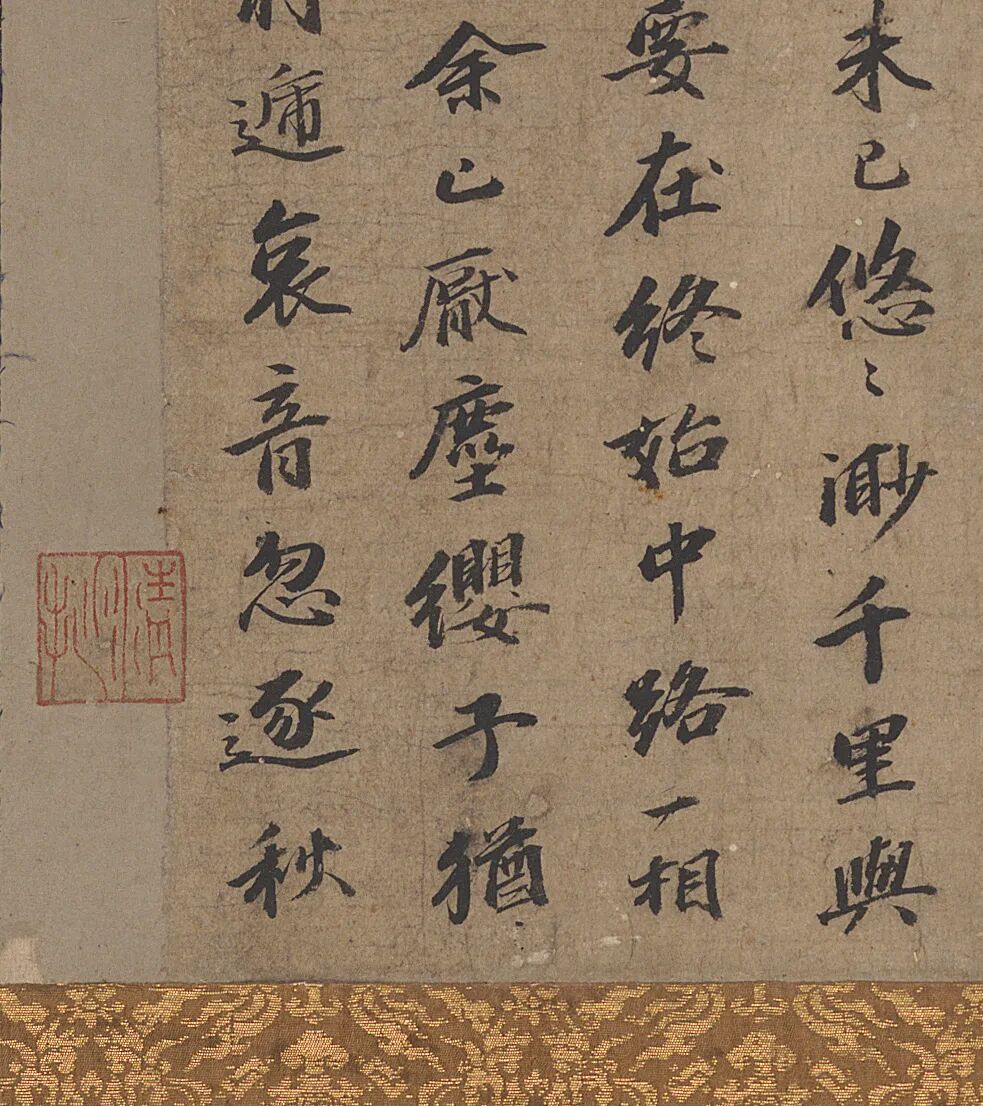 未已悠〻渺千里與
要在終始中路一相
余已厭塵纓子猶
遞哀音忽逐秋